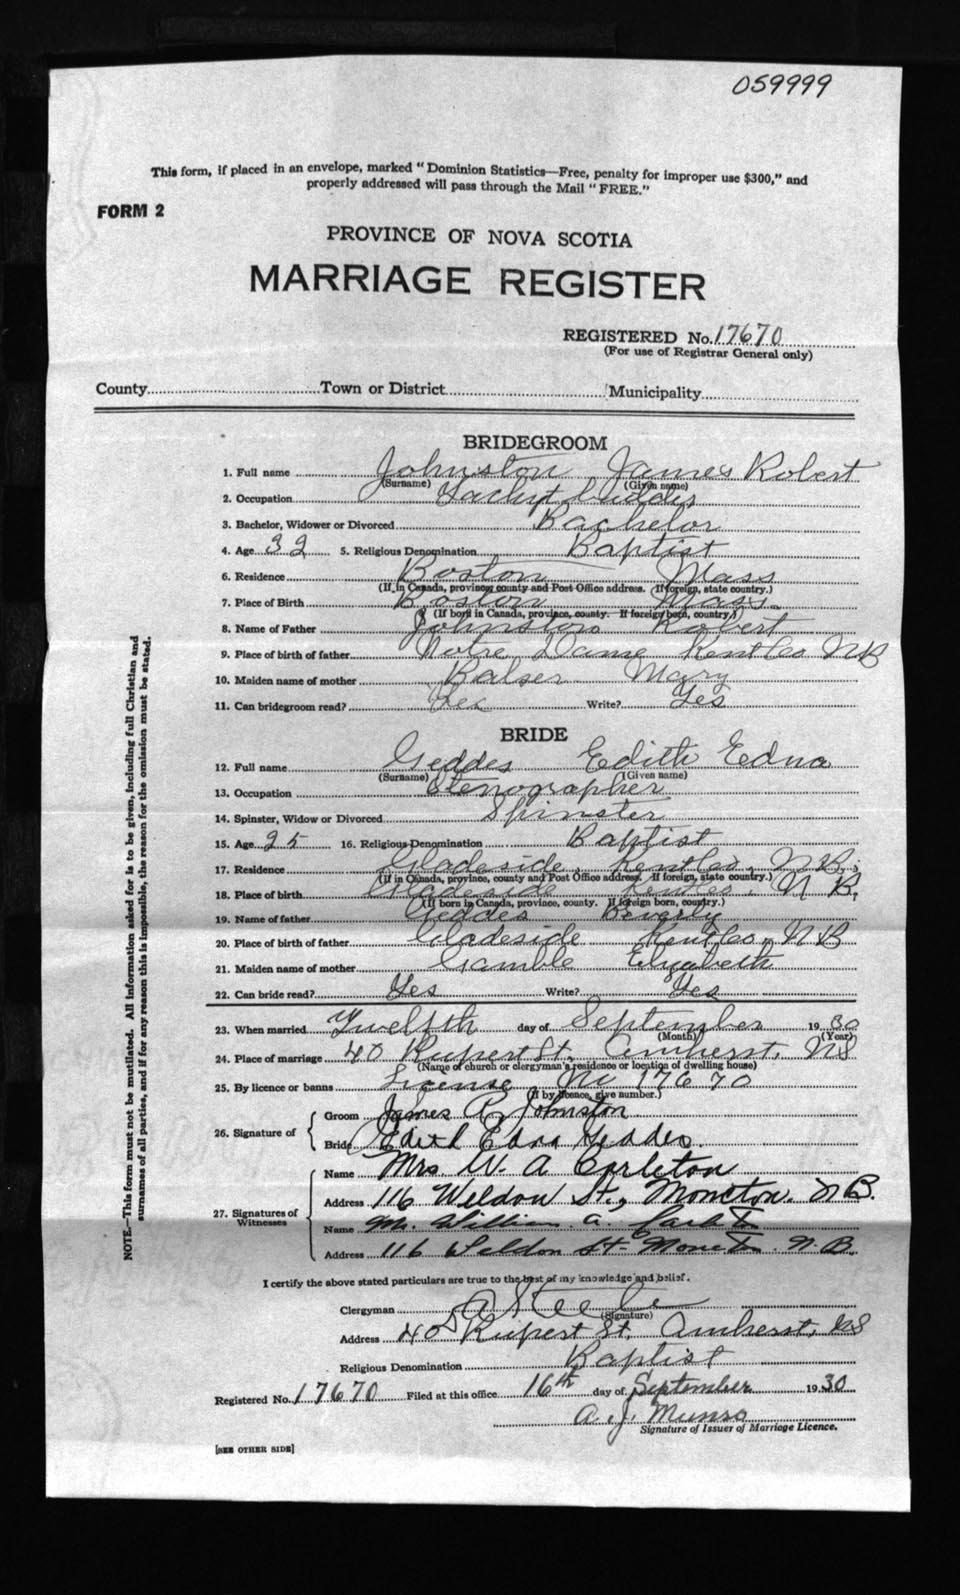 059999
This form, if placed in an envelope, marked "Dominion Statistics—Free, penalty for improper use $300," and
properly addressed will pass through the Mail "FREE."
FORM 2
PROVINCE OF NOVA SCOTIA
MARRIAGE REGISTER
REGISTERED No. 17670
(For use of Registrar General only)
County Town or District Municipality
BRIDEGROOM
1. Full name Johnston James Robert
(Surname) (Given name)
2. Occupation
3. Bachelor, Widower or Divorced Bachelor
4. Age 32 5. Religious Denomination Baptist
6. Residence Boston Mass
(If in Canada, province, county and Post Office address. If foreign, state country.)
7. Place of Birth Boston Mass.
(If born in Canada, province, county. If foreign born, country.)
8. Name of Father Johnston Robert
9. Place of birth of father Notre Dame Kent Co NB
10. Maiden name of mother Balser Mary
11. Can bridegroom read? Yes Write? Yes
BRIDE
12. Full name Geddes Edith Edna
(Surname) (Given name)
13. Occupation Stenographer
14. Spinster, Widow or Divorced Spinster
15. Age 25 16. Religious Denomination Baptist
17. Residence Gladeside Kent Co. N.B.
(If in Canada, province, county and Post Office address. If foreign, state country.)
18. Place of birth Gladeside Kent Co. N B.
(If born in Canada, province, county. If foreign born, country.)
19. Name of father Geddes Beverly
20. Place of birth of father Gladeside Kent Co. N B
21. Maiden name of mother Gamble Elizabeth
22. Can bride read? Yes Write? Yes
23. When married Twelfth day of September 1930
(Month) (Year)
24. Place of marriage 40 Rupert St. Amherst, NS
(Name of church or clergyman's residence or location of dwelling house)
25. By licence or banns License No 17670
(If by licence, give number.)
26. Signature of Groom James R. Johnston
Bride Edith Edna Geddes.
27. Signatures of Witnesses
Name Mrs W. A Carleton
Address 116 Weldon St., Moncton. N B.
Name M. William A.
Address 116 Weldon St- Moncton. N.B.
I certify the above stated particulars are true to the best of my knowledge and belief.
Clergyman Steele
(Signature)
Address 40 Rupert St. Amherst, NS
Religious Denomination Baptist
Registered No. 17670 Filed at this office 16th day of September 1930
A. J. Munro
Signature of Issuer of Marriage Licence.
[SEE OTHER SIDE]
NOTE.—This form must not be mutilated. All information asked for is to be given, including full Christian and
surnames of all parties, and if for any reason this is impossible, the reason for the omission must be stated.